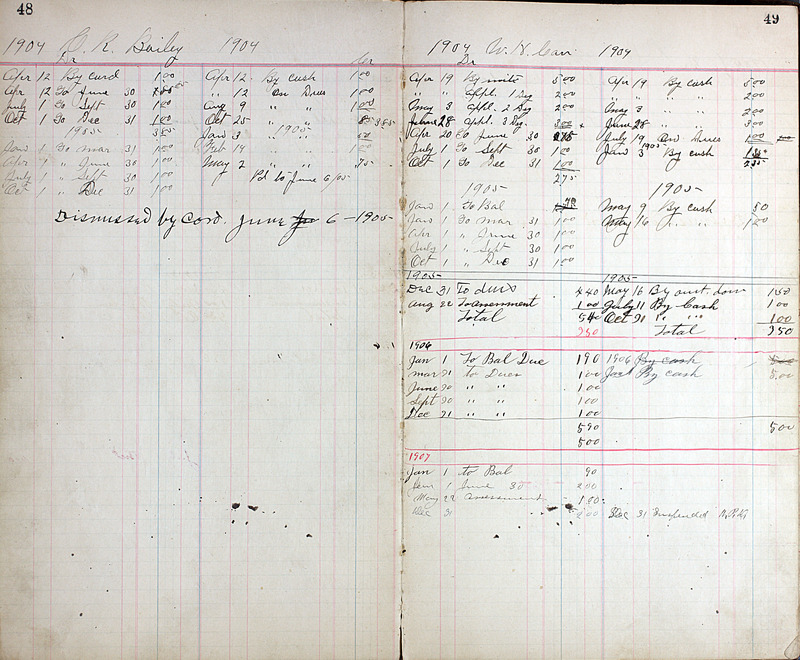 48
1904 C. R. Bailey 1904
Dr Cr
Apr 12 By card 1.00 Apr 12 By cash 1.00
Apr 12 To June 30 " 12 On Dues 1.00
July 1 To Sept 30 1.00 Aug 9 " " 1.00
Oct 1 To Dec 31 1.00 Oct 25 " " 385
1905 385 Jan 3 1905
Jan 1 To Mar 31 1.00 Feb 14 " " 1.00
Apr 1 " June 30 1.00 May 2 " " 75
July 1 " Sept 30 1.00 Pd to June 6/05
Oct 1 " Dec 31 1.00
Dismissed by card. June 6 - 1905
49
1904 W. H. Carr 1904
Dr
Apr 19 By 500 Apr 19 By cash 500
" " Appl. 1 Deg 200 " " 200
May 3 Appl. 2 Deg 200 May 3 " 200
June 28 Appl. 3 Deg. 300 June 28 " 300
Apr 20 To June 30 July 19 On Dues 1.00
July 1 To Sept 30 1.00 Jan 3 1905 By cash
Oct 1 To Dec 31 1.00 235
275
1905 1905
Jan 1 To Bal 40 May 9 By cash 50
Jan 1 To Mar 31 1.00 May 16 " " 1.00
Apr 1 " June 30 1.00
July 1 " Sept 30 1.00
Oct 1 " Dec 31 1.00
1905 1905
Dec 31 To dues 440 May 16 By amt down 150
Aug 22 To assessment 100 July 11 By Cash 100
Total 540 Oct 31 " " 100
350 Total 350
1906
Jan 1 To Bal Due 190 1906 By cash
Mar 31 to Dues 100 Jan 1 By cash 5.00
June 30 " " 100
Sept 30 " " 100
Dec 31 " " 100
590 500
500
1907
Jan 1 to Bal 90
Jan 1 June 30 200
May 22 assessment 100
Dec 31 200 Dec 31 Suspended